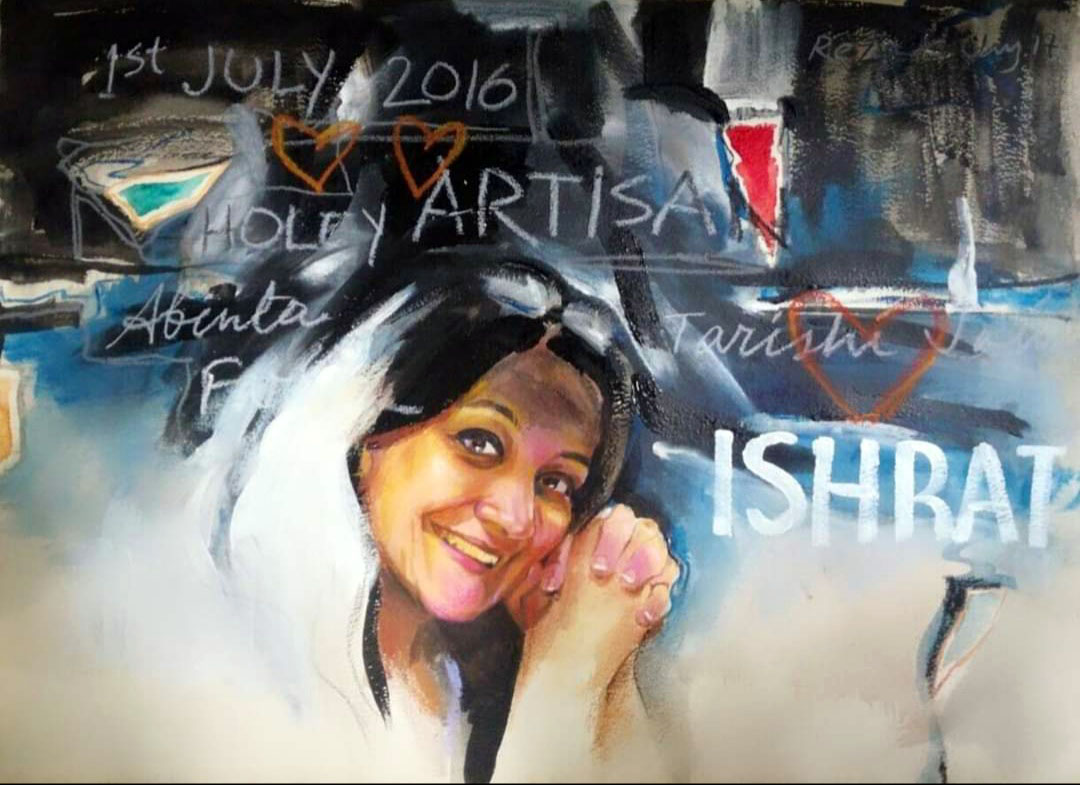 1st JULY 2016
HOLEY ARTISAN
Abinta
Tarishi
ISHRAT